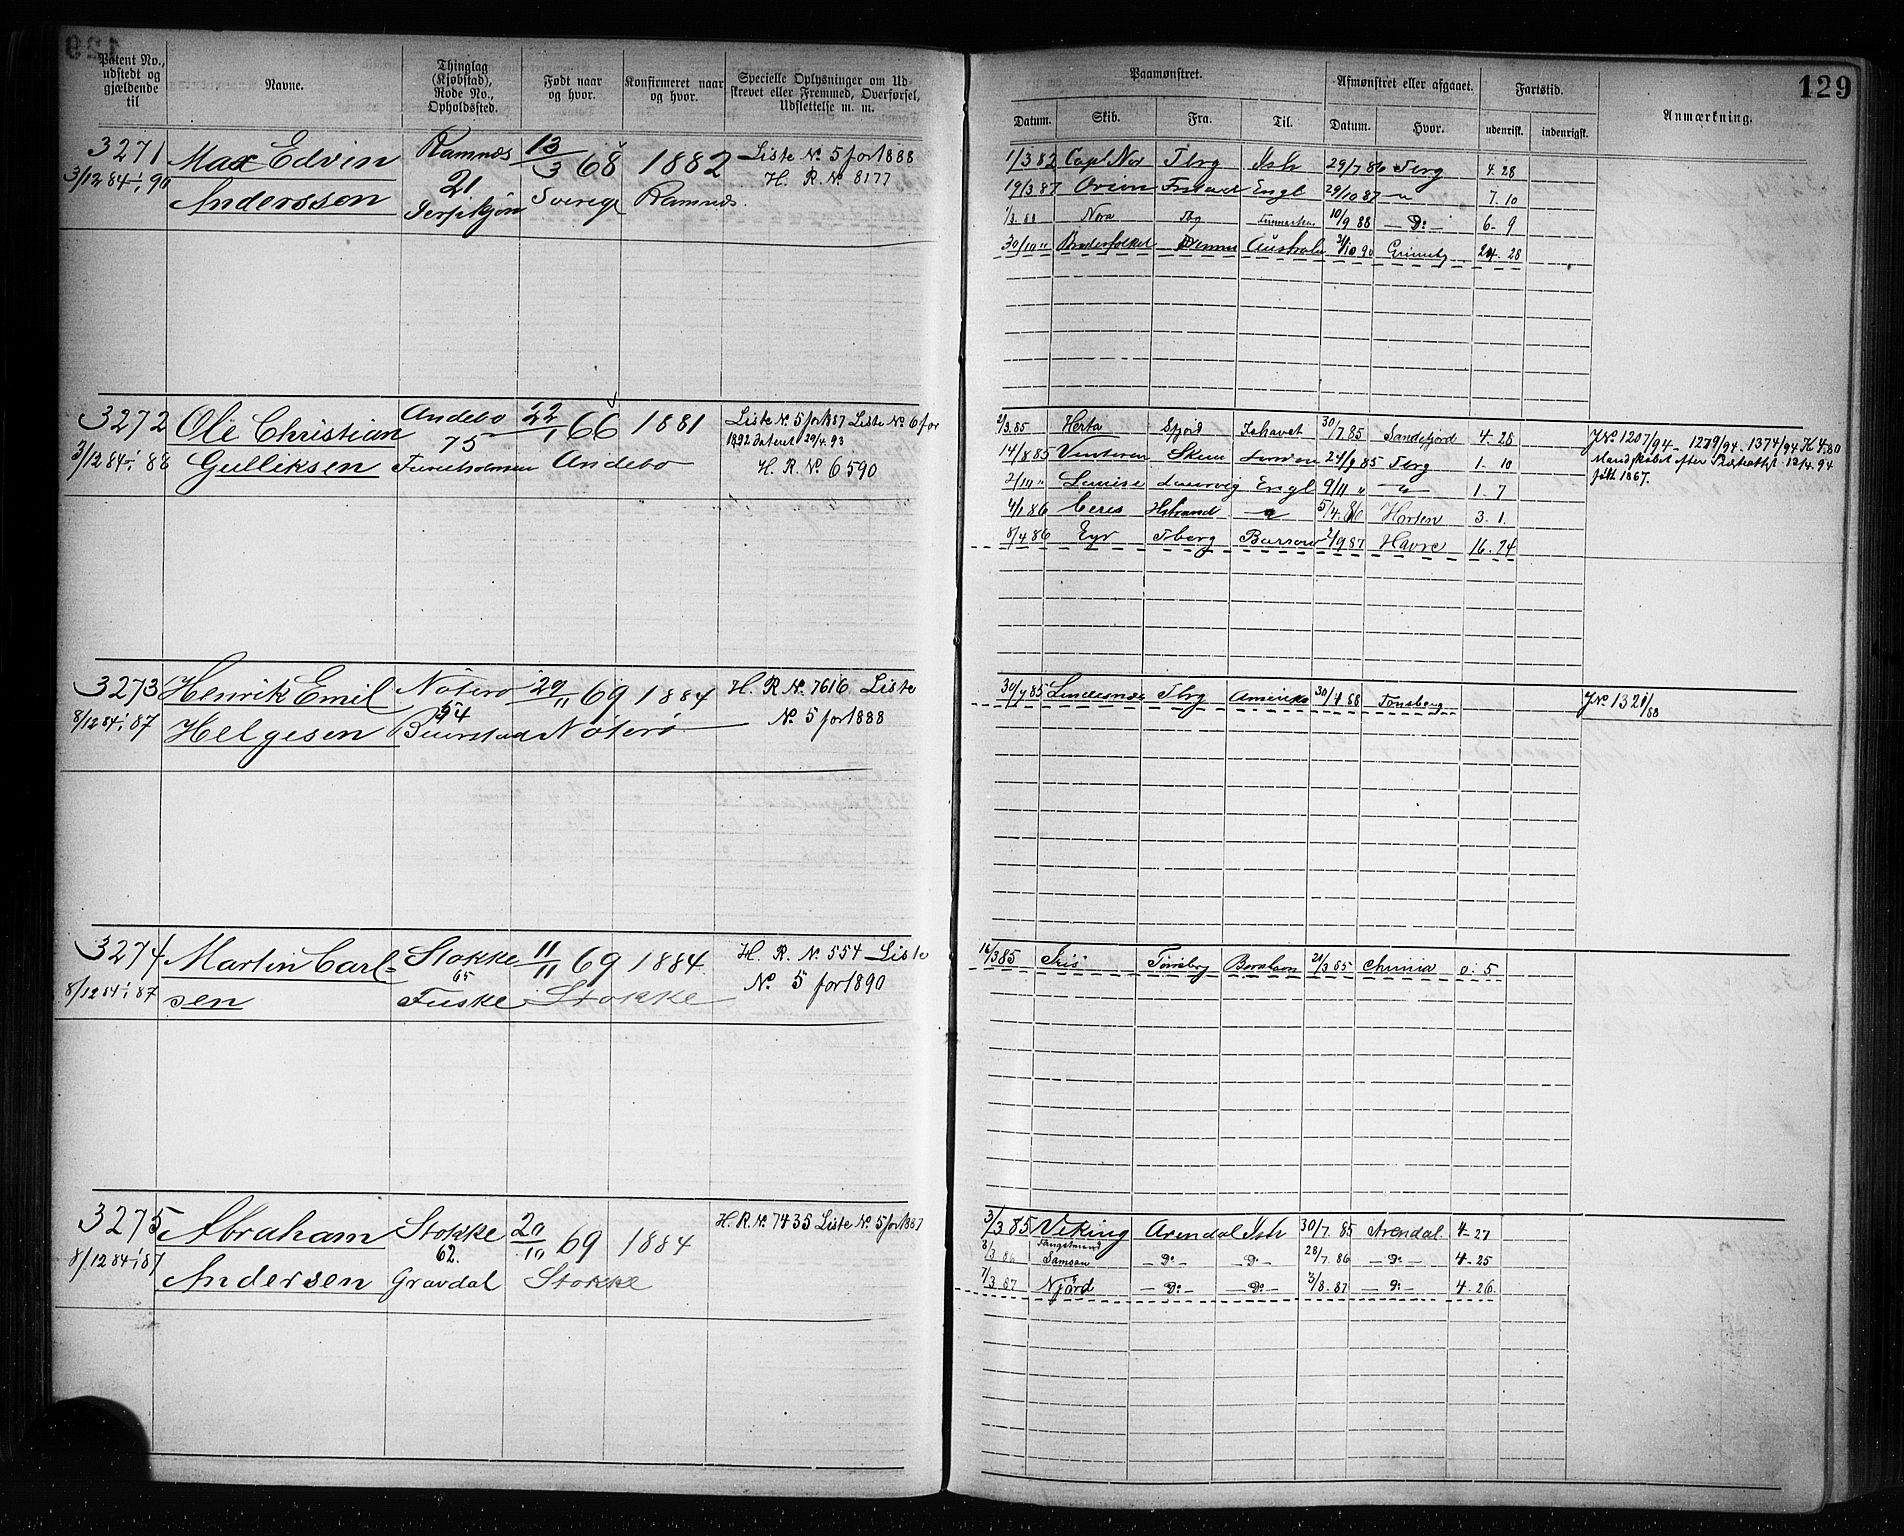 129
Patent No., udstedt og gjældende til
Navne.
Thinglag (Kjøbstad), Rode No., Opholdssted.
Født naar og hvor.
Konfirmeret naar og hvor.
Specielle Oplysninger om Udskrevet eller Fremmed, Overførsel, Udslettelse m. m.
Paamønstret.
Afmønstret eller afgaaet.
Fartstid.
Anmærkning.
Datum. Skib. Fra. Til. Datum. Hvor. udenrigsk. indenrigsk.
3271 Max Edvin Ramnæs 13/3 68 1882 Liste No 5 for 1888
3/12 84-i 90 Andersson 21 Sverige Ramnæs. H. R. No 8177
1/3 82 Capl Nor Tbrg Ish 29/7 86 Tbrg 4. 28
19/3 87 Orion Engl 29/10 87 — " 7. 10
1/3. 88 Nora 10/9 88 — Do — 6 - 9
30/10 " Broderfolket Australi 90 24. 28
3272 Ole Christian Andebo 22/1 66 1881 Liste No 5 for 1887 Liste No 6 for
1892 dateret 29/4. 93
3/12 84-i 88 Gulliksen 75 Andebo H. R. No 6590
2/3.85 Herta Ishavet 30/7.85 Sandefjord 4- 28
14/8.85 Skien 24/9 85 Tbrg 1 - 10
2/10 " Louise Laurvig Engl 9/11 " — " — 1. 7
4/1 86 Ceres — " 5/4. 86 Horten 3. 1.
8/4 86 Eyr Tberg Barrow 2/9 87 Havre 16. 24
J No 1207/94 - 1279/94 - 1374/94 K 4.80
Mandskabet efter 12/4. 94
født 1867.
3273 Henrik Emil Nøterø 29/11 69 1884 H. R. No 7616 Liste
8/12 84-i 87 Helgesen 54 Nøterø No 5 for 1888
30/7 85 Lindesnæs Tbrg Amerika 30/4 88 Tønsberg J No 1321/88
3274 Martin Carl- Stokke 11/11 69 1884 H. R. No 554 Liste
8/12 84-i 87 sen 65 Fuske Stokke No 5 for 1890
16/3 85 Iris Tønsberg 21/3 85 0. 5
3275 Abraham Stokke 20/10 69 1884 H. R. No. 7435 Liste No 5 for 1887
8/12 84-i 87 Andersen 62. Gravdal Stokke
3/3 85 Viking Arendal Ish 30/7. 85 Arendal 4- 27
3/3 86 Fangstmand Samson — Do — — Do — 28/7. 86 — Do — 4- 25
7/3 87 Njørd — Do — — Do — 3/8. 87 — Do — 4- 26